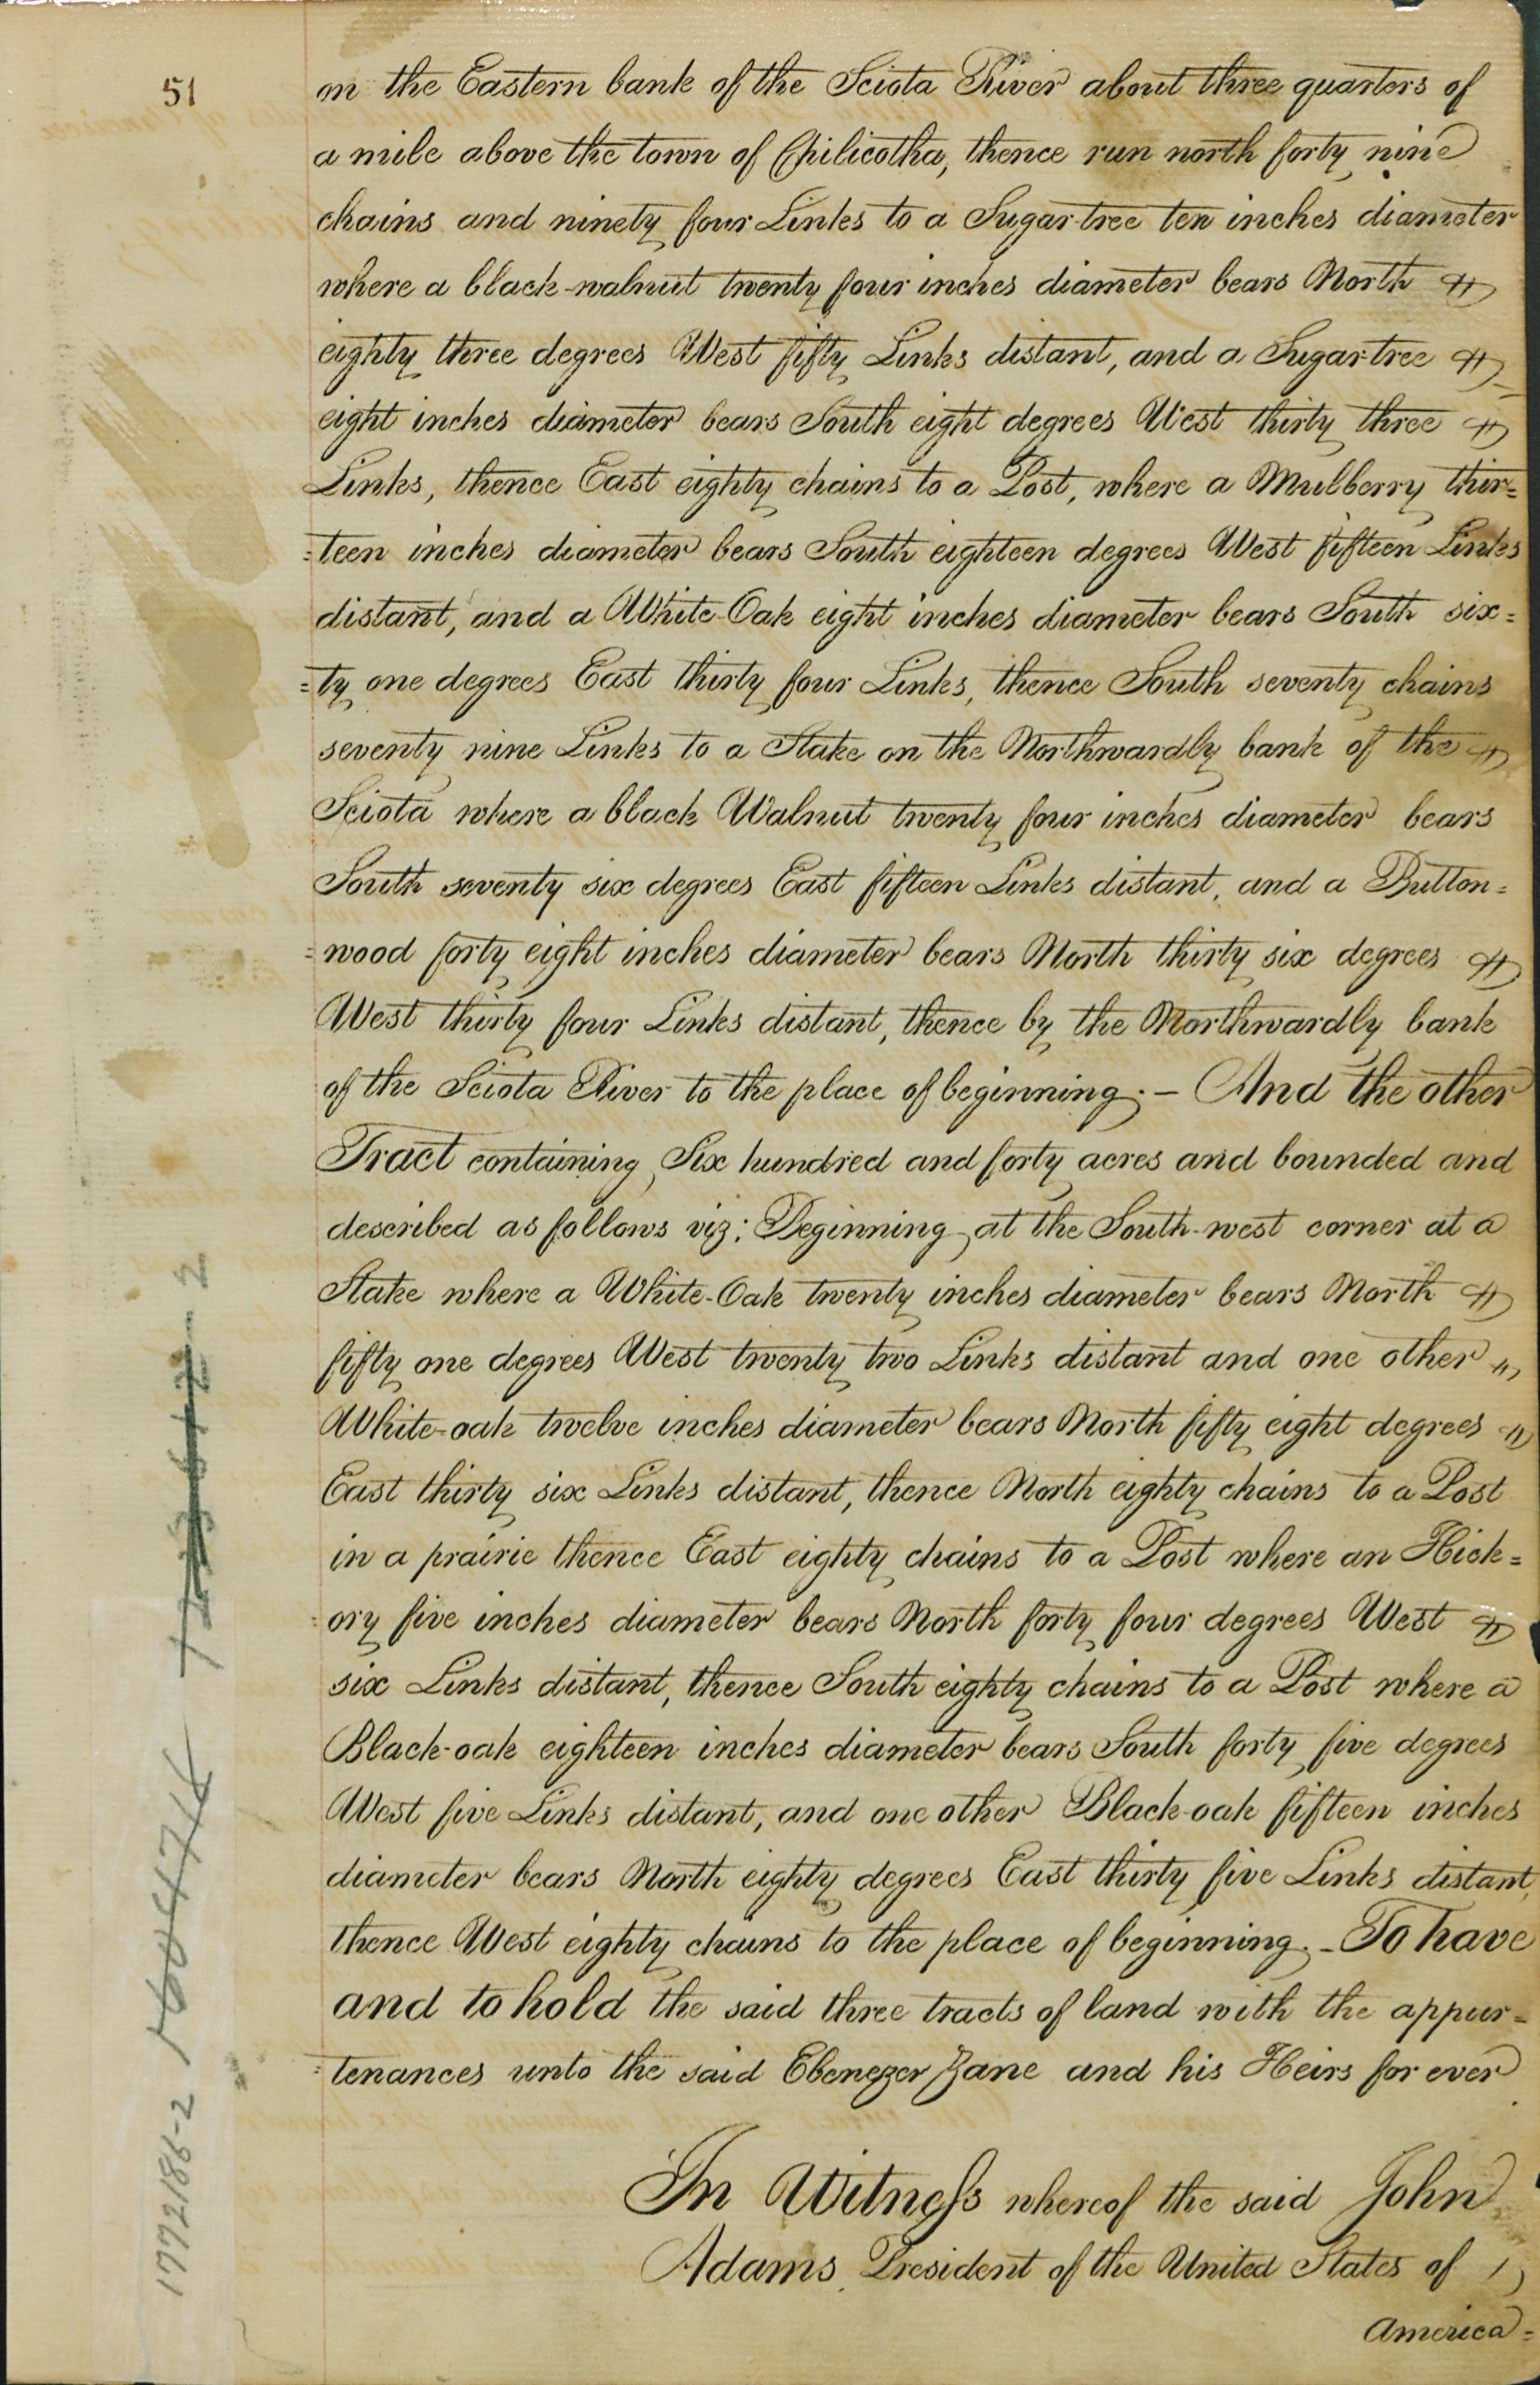 51
on the Eastern bank of the Sciota River about three quarters of
a mile above the town of Chilicotha, thence run north forty nine
chains and ninety four Links to a Sugar-tree ten inches diameter
where a black-walnut twenty four inches diameter bears North
eighty three degrees West fifty Links distant, and a Sugar-tree
eight inches diameter bears South eight degrees West thirty three
Links, thence East eighty chains to a Post, where a Mulberry thir=
=teen inches diameter bears South eighteen degrees West fifteen Links
distant, and a White-Oak eight inches diameter bears South six=
=ty one degrees East thirty four Links, thence South seventy chains
seventy nine Links to a Stake on the Northwardly bank of the
Sciota where a black Walnut twenty four inches diameter bears
South seventy six degrees East fifteen Links distant, and a Button=
=wood forty eight inches diameter bears North thirty six degrees
West thirty four Links distant, thence by the Northwardly bank
of the Sciota River to the place of beginning. – And the other
Tract containing Six hundred and forty acres and bounded and
described as follows viz: Beginning at the South-west corner at a
Stake where a White-Oak twenty inches diameter bears North
fifty one degrees West twenty two Links distant and one other
White-oak twelve inches diameter bears North fifty eight degrees
East thirty six Links distant, thence North eighty chains to a Post
in a prairie thence East eighty chains to a Post where an Hick=
=ory five inches diameter bears North forty four degrees West
six Links distant, thence South eighty chains to a Post where a
Black-oak eighteen inches diameter bears South forty five degrees
West five Links distant, and one other Black-oak fifteen inches
diameter bears North eighty degrees East thirty five Links distant,
thence West eighty chains to the place of beginning. – To have
and to hold the said three tracts of land with the appur=
=tenances unto the said Ebenezer Zane and his Heirs for ever
In Witness whereof the said John
Adams, President of the United States of
America=
1772186-2